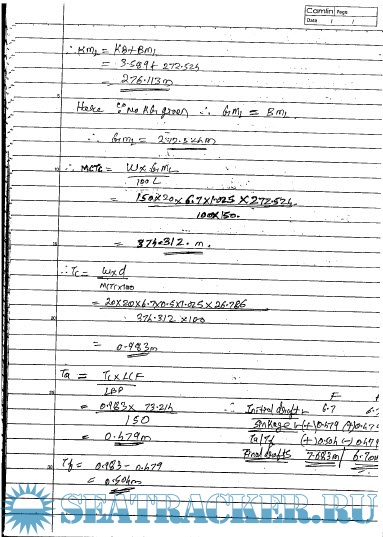 Camlin Page
Date / /
∴ KML = KB + BML
= 3.589 + 272.524
= 276.113m
5
Here ∵ No KG given ∴ GML = BML
∴ GML = 272.524m
10 ∴ MCTC = W x GML
100 L
= 150 x 20 x 6.7 x 1.025 x 272.524
100 x 150.
15
= 374.312. m.
∴ Tc = w x d
MCTC x 100
= 20 x 20 x 6.7 x 0.5 x 1.025 x 26.786
20
374.312 x 100
= 0.983m
Ta = Tc x LCF
LBP
F
25
= 0.983 x 73.214
150
∴ Initial draft - 6.7
Sinkage - (+) 0.479
= 0.479m
Ta/Tf (+) 0.504 (-) 0.479
Final drafts 7.683m
30 Tf = 0.983 - 0.479
= 0.504m
SEATRACKER.RU